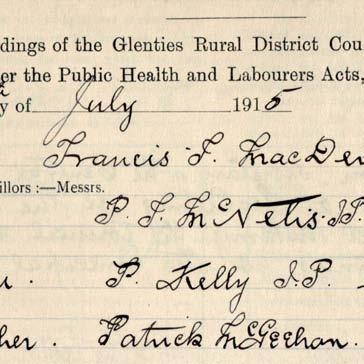 dings of the Glenties Rural District Cou
er the Public Health and Labourers Acts,
y of July 1915
Francis J. MacDe
illors :—Messrs.
P. J. McNelis J.P.
P. Kelly J.P.
her. Patrick McGeehan.